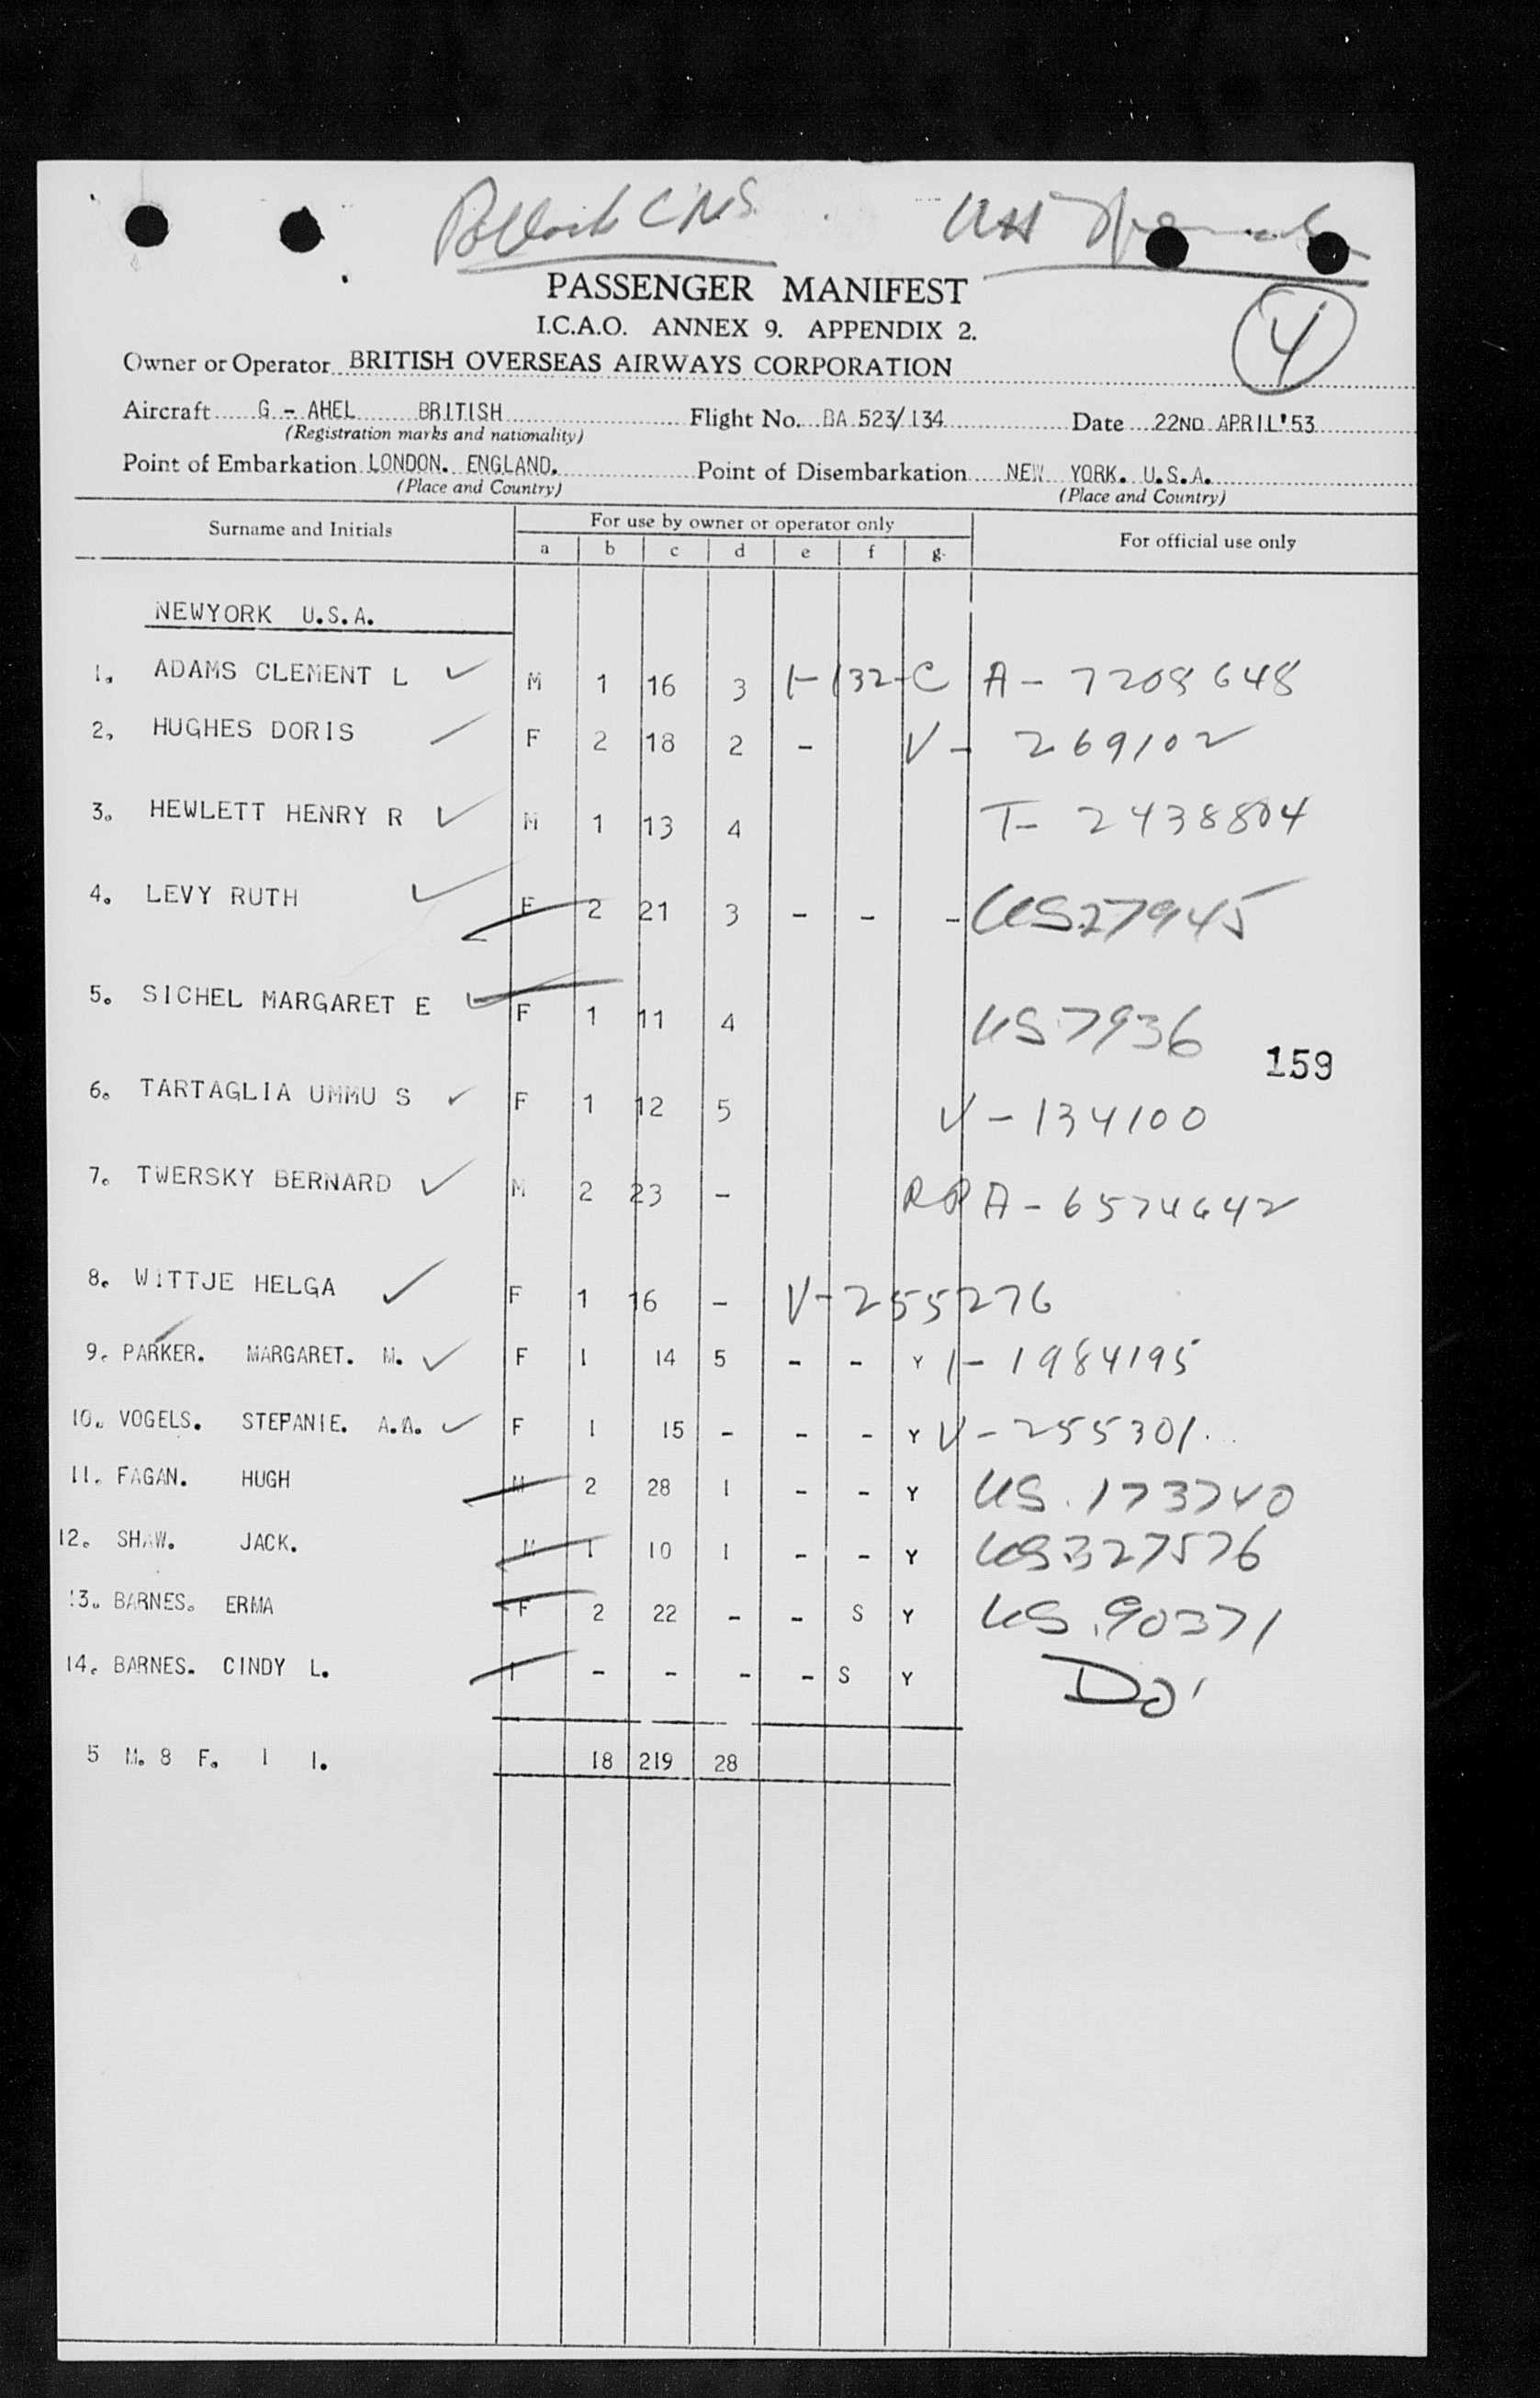 C.N.S.
PASSENGER MANIFEST
I.C.A.O. ANNEX 9. APPENDIX 2.
4
Owner or Operator BRITISH OVERSEAS AIRWAYS CORPORATION
Aircraft G - AHEL BRITISH Flight No. BA 523/134 Date 22ND APRIL'53
(Registration marks and nationality)
Point of Embarkation LONDON. ENGLAND. Point of Disembarkation NEW YORK. U.S.A.
(Place and Country) (Place and Country)
Surname and Initials For use by owner or operator only For official use only
a b c d e f g.
NEWYORK U.S.A.
1. ADAMS CLEMENT L M 1 16 3 1-132-C A-7208648
2. HUGHES DORIS F 2 18 2 - V-269102
3. HEWLETT HENRY R M 1 13 4 T-2438804
4. LEVY RUTH F 2 21 3 - - - US27945
5. SICHEL MARGARET E F 1 11 4 US7936
159
6. TARTAGLIA UMMU S F 1 12 5 V-134100
7. TWERSKY BERNARD M 2 23 - RP A-6574642
8. WITTJE HELGA F 1 16 - V-255276
9. PARKER. MARGARET. M. F 1 14 5 - - Y 1-1984195
10. VOGELS. STEPANIE. A.A. F 1 15 - - - Y V-255301.
11. FAGAN. HUGH M 2 28 1 - - Y US.173740
12. SHAW. JACK. M 1 10 1 - - Y US327576
13. BARNES. ERMA F 2 22 - - S Y US.90371
14. BARNES. CINDY L. I - - - - S Y Do'
5 M. 8 F. 1 I. 18 219 28